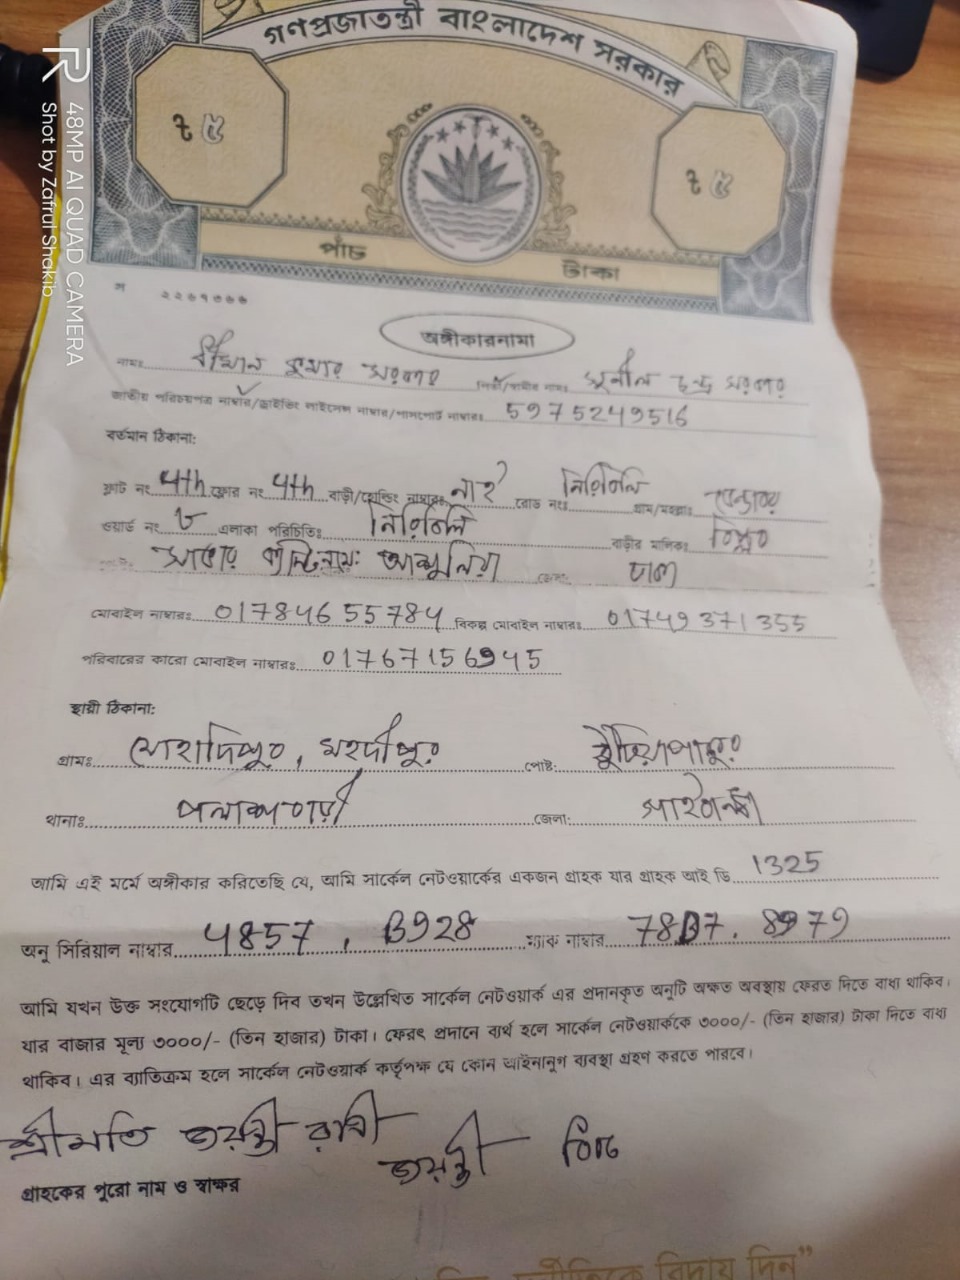 গণপ্রজাতন্ত্রী বাংলাদেশ সরকার
৳ ৫
৳ ৫
পাঁচ টাকা
অঙ্গীকারনামা
নামঃ কুমার সরকার পিতা/স্বামীর নামঃ সুনীল চন্দ্র সরকার
জাতীয় পরিচয়পত্র নাম্বার/ড্রাইভিং লাইসেন্স নাম্বার/পাসপোর্ট নাম্বারঃ 5975249516
বর্তমান ঠিকানা:
ফ্লাট নং 4th ফ্লোর নং 4th বাড়ী/হোল্ডিং নাম্বারঃ নাই রোড নংঃ নিরিবিলি গ্রাম/মহল্লাঃ
ওয়ার্ড নং ৮ এলাকা পরিচিতিঃ নিরিবিলি বাড়ীর মালিকঃ
সাভার আশুলিয়া জেলা: ঢাকা
মোবাইল নাম্বারঃ 01784655784 বিকল্প মোবাইল নাম্বারঃ 01749371355
পরিবারের কারো মোবাইল নাম্বারঃ 01767156945
স্থায়ী ঠিকানা:
গ্রামঃ মহদীপুর পোষ্ট:
থানাঃ পলাশবাড়ী জেলা: গাইবান্ধা
আমি এই মর্মে অঙ্গীকার করিতেছি যে, আমি সার্কেল নেটওয়ার্কের একজন গ্রাহক যার গ্রাহক আই ডি 1325
অনু সিরিয়াল নাম্বার 4857, B928 ম্যাক নাম্বার 78D7. 8979
আমি যখন উক্ত সংযোগটি ছেড়ে দিব তখন উল্লেখিত সার্কেল নেটওয়ার্ক এর প্রদানকৃত অনুটি অক্ষত অবস্থায় ফেরত দিতে বাধ্য থাকিব।
যার বাজার মূল্য ৩০০০/- (তিন হাজার) টাকা। ফেরৎ প্রদানে ব্যর্থ হলে সার্কেল নেটওয়ার্ককে ৩০০০/- (তিন হাজার) টাকা দিতে বাধ্য
থাকিব। এর ব্যাতিক্রম হলে সার্কেল নেটওয়ার্ক কর্তৃপক্ষ যে কোন আইনানুগ ব্যবস্থা গ্রহণ করতে পারবে।
শ্রীমতি জয়ন্তী রানী
জয়ন্তী
গ্রাহকের পুরো নাম ও স্বাক্ষর
বিদায় দিন"
48MP AI QUAD CAMERA
Shot by Zafrul Shakib